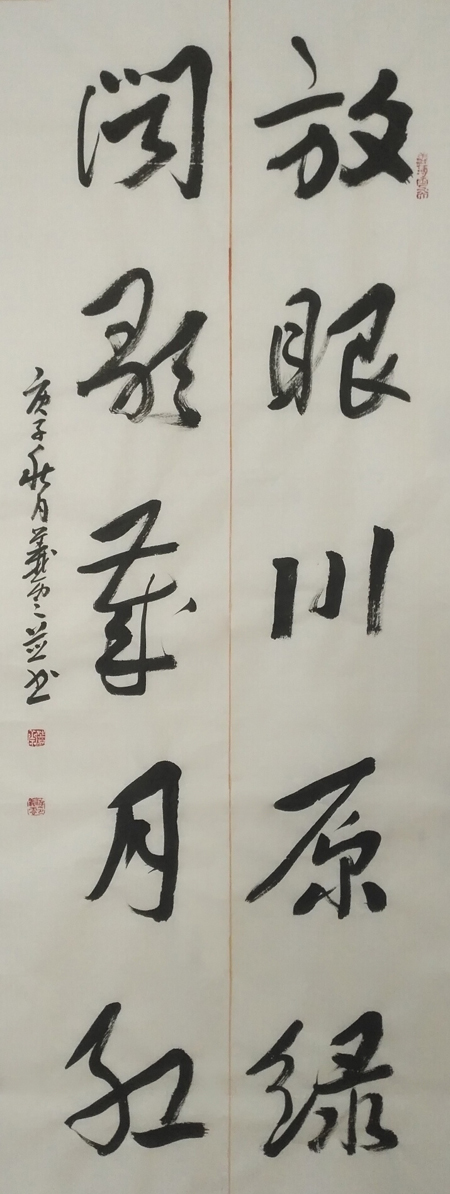 放眼川原绿
闻歌歲月红
庚子秋月義雲书